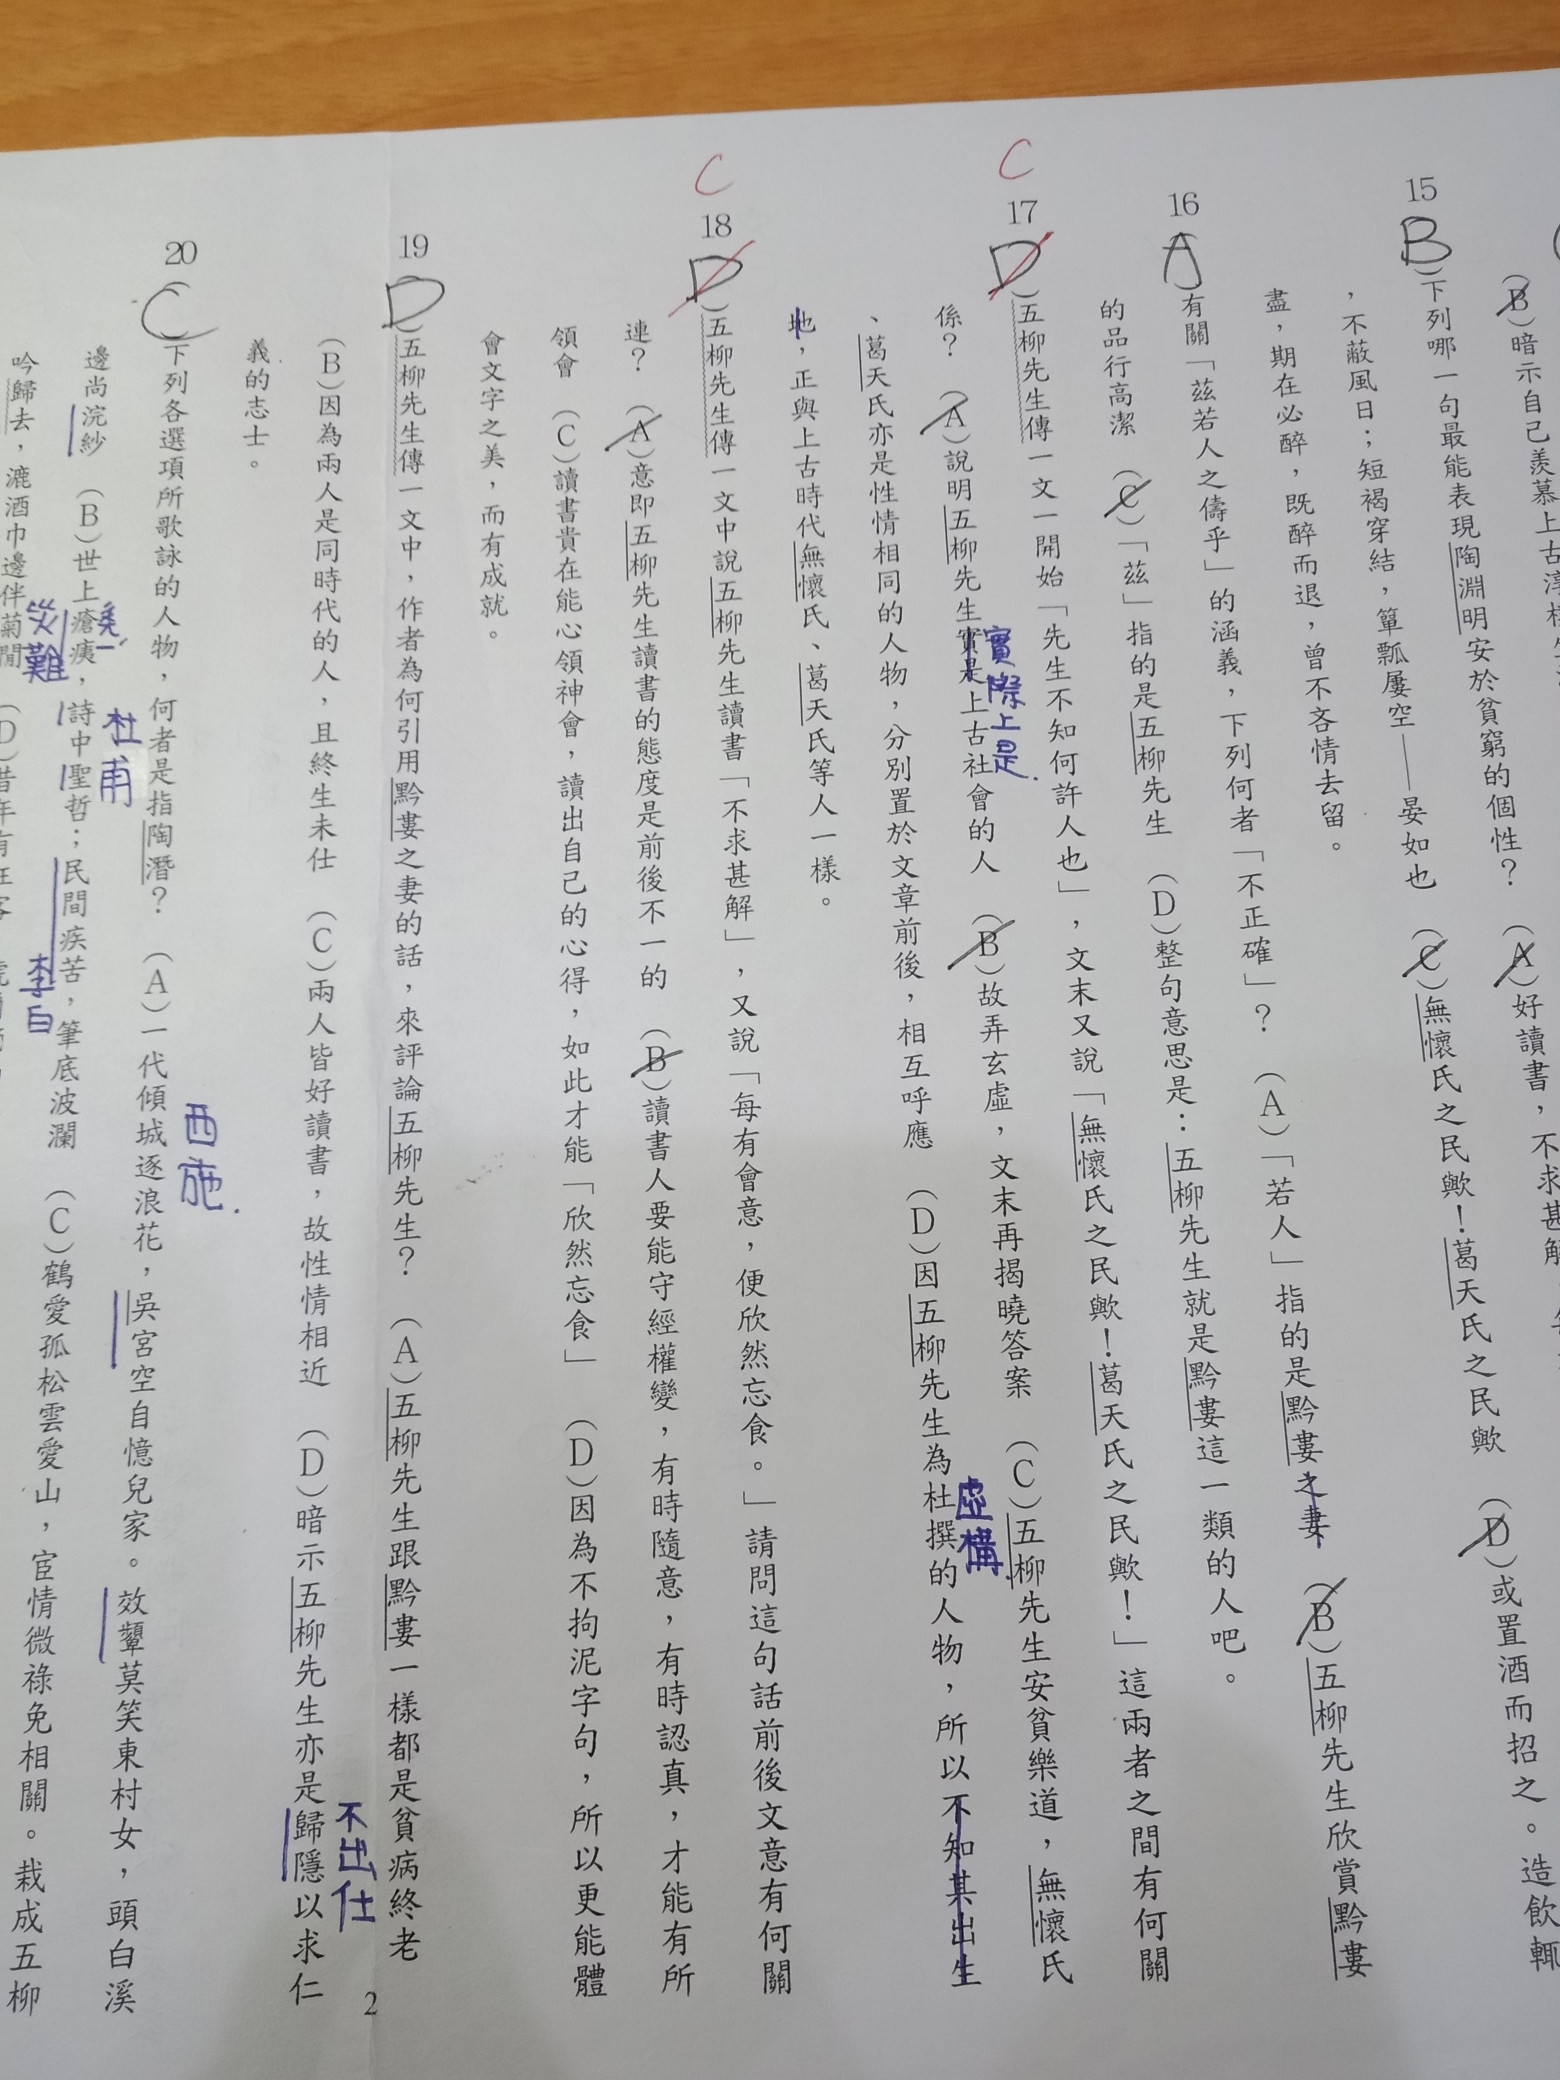 (B)暗示自己羨慕上古淳樸生
15
B
)下列哪一句最能表現陶淵明安於貧窮的個性? (A)好讀書,不求甚解
,不蔽風日;短褐穿結,簞瓢屢空——晏如也 (C)無懷氏之民歟!葛天氏之民歟 (D)或置酒而招之。造飲輒
盡,期在必醉,既醉而退,曾不吝情去留。
16
A
)有關「茲若人之儔乎」的涵義,下列何者「不正確」? (A)「若人」指的是黔婁之妻 (B)五柳先生欣賞黔婁
的品行高潔 (C)「茲」指的是五柳先生 (D)整句意思是:五柳先生就是黔婁這一類的人吧。
C
17
D
)五柳先生傳一文一開始「先生不知何許人也」,文末又說「無懷氏之民歟!葛天氏之民歟!」這兩者之間有何關
係? (A)說明五柳先生實是上古社會的人 (B)故弄玄虛,文末再揭曉答案 (C)五柳先生安貧樂道,無懷氏
實際上是.
、葛天氏亦是性情相同的人物,分別置於文章前後,相互呼應 (D)因五柳先生為杜撰的人物,所以不知其出生
虛構.
地,正與上古時代無懷氏、葛天氏等人一樣。
C
18
D
)五柳先生傳一文中說五柳先生讀書「不求甚解」,又說「每有會意,便欣然忘食。」請問這句話前後文意有何關
連? (A)意即五柳先生讀書的態度是前後不一的 (B)讀書人要能守經權變,有時隨意,有時認真,才能有所
領會 (C)讀書貴在能心領神會,讀出自己的心得,如此才能「欣然忘食」 (D)因為不拘泥字句,所以更能體
會文字之美,而有成就。
19
D
)五柳先生傳一文中,作者為何引用黔婁之妻的話,來評論五柳先生? (A)五柳先生跟黔婁一樣都是貧病終老
(B)因為兩人是同時代的人,且終生未仕 (C)兩人皆好讀書,故性情相近 (D)暗示五柳先生亦是歸隱以求仁
不出仕
義的志士。
20
(C
)下列各選項所歌詠的人物,何者是指陶潛? (A)一代傾城逐浪花,吳宮空自憶兒家。效顰莫笑東村女,頭白溪
西施.
邊尚浣紗 (B)世上瘡痍,詩中聖哲;民間疾苦,筆底波瀾 (C)鶴愛孤松雲愛山,宦情微祿免相關。栽成五柳
杜甫
災難
李白
吟歸去,漉酒巾邊伴菊閒 (D)昔年有狂客
2